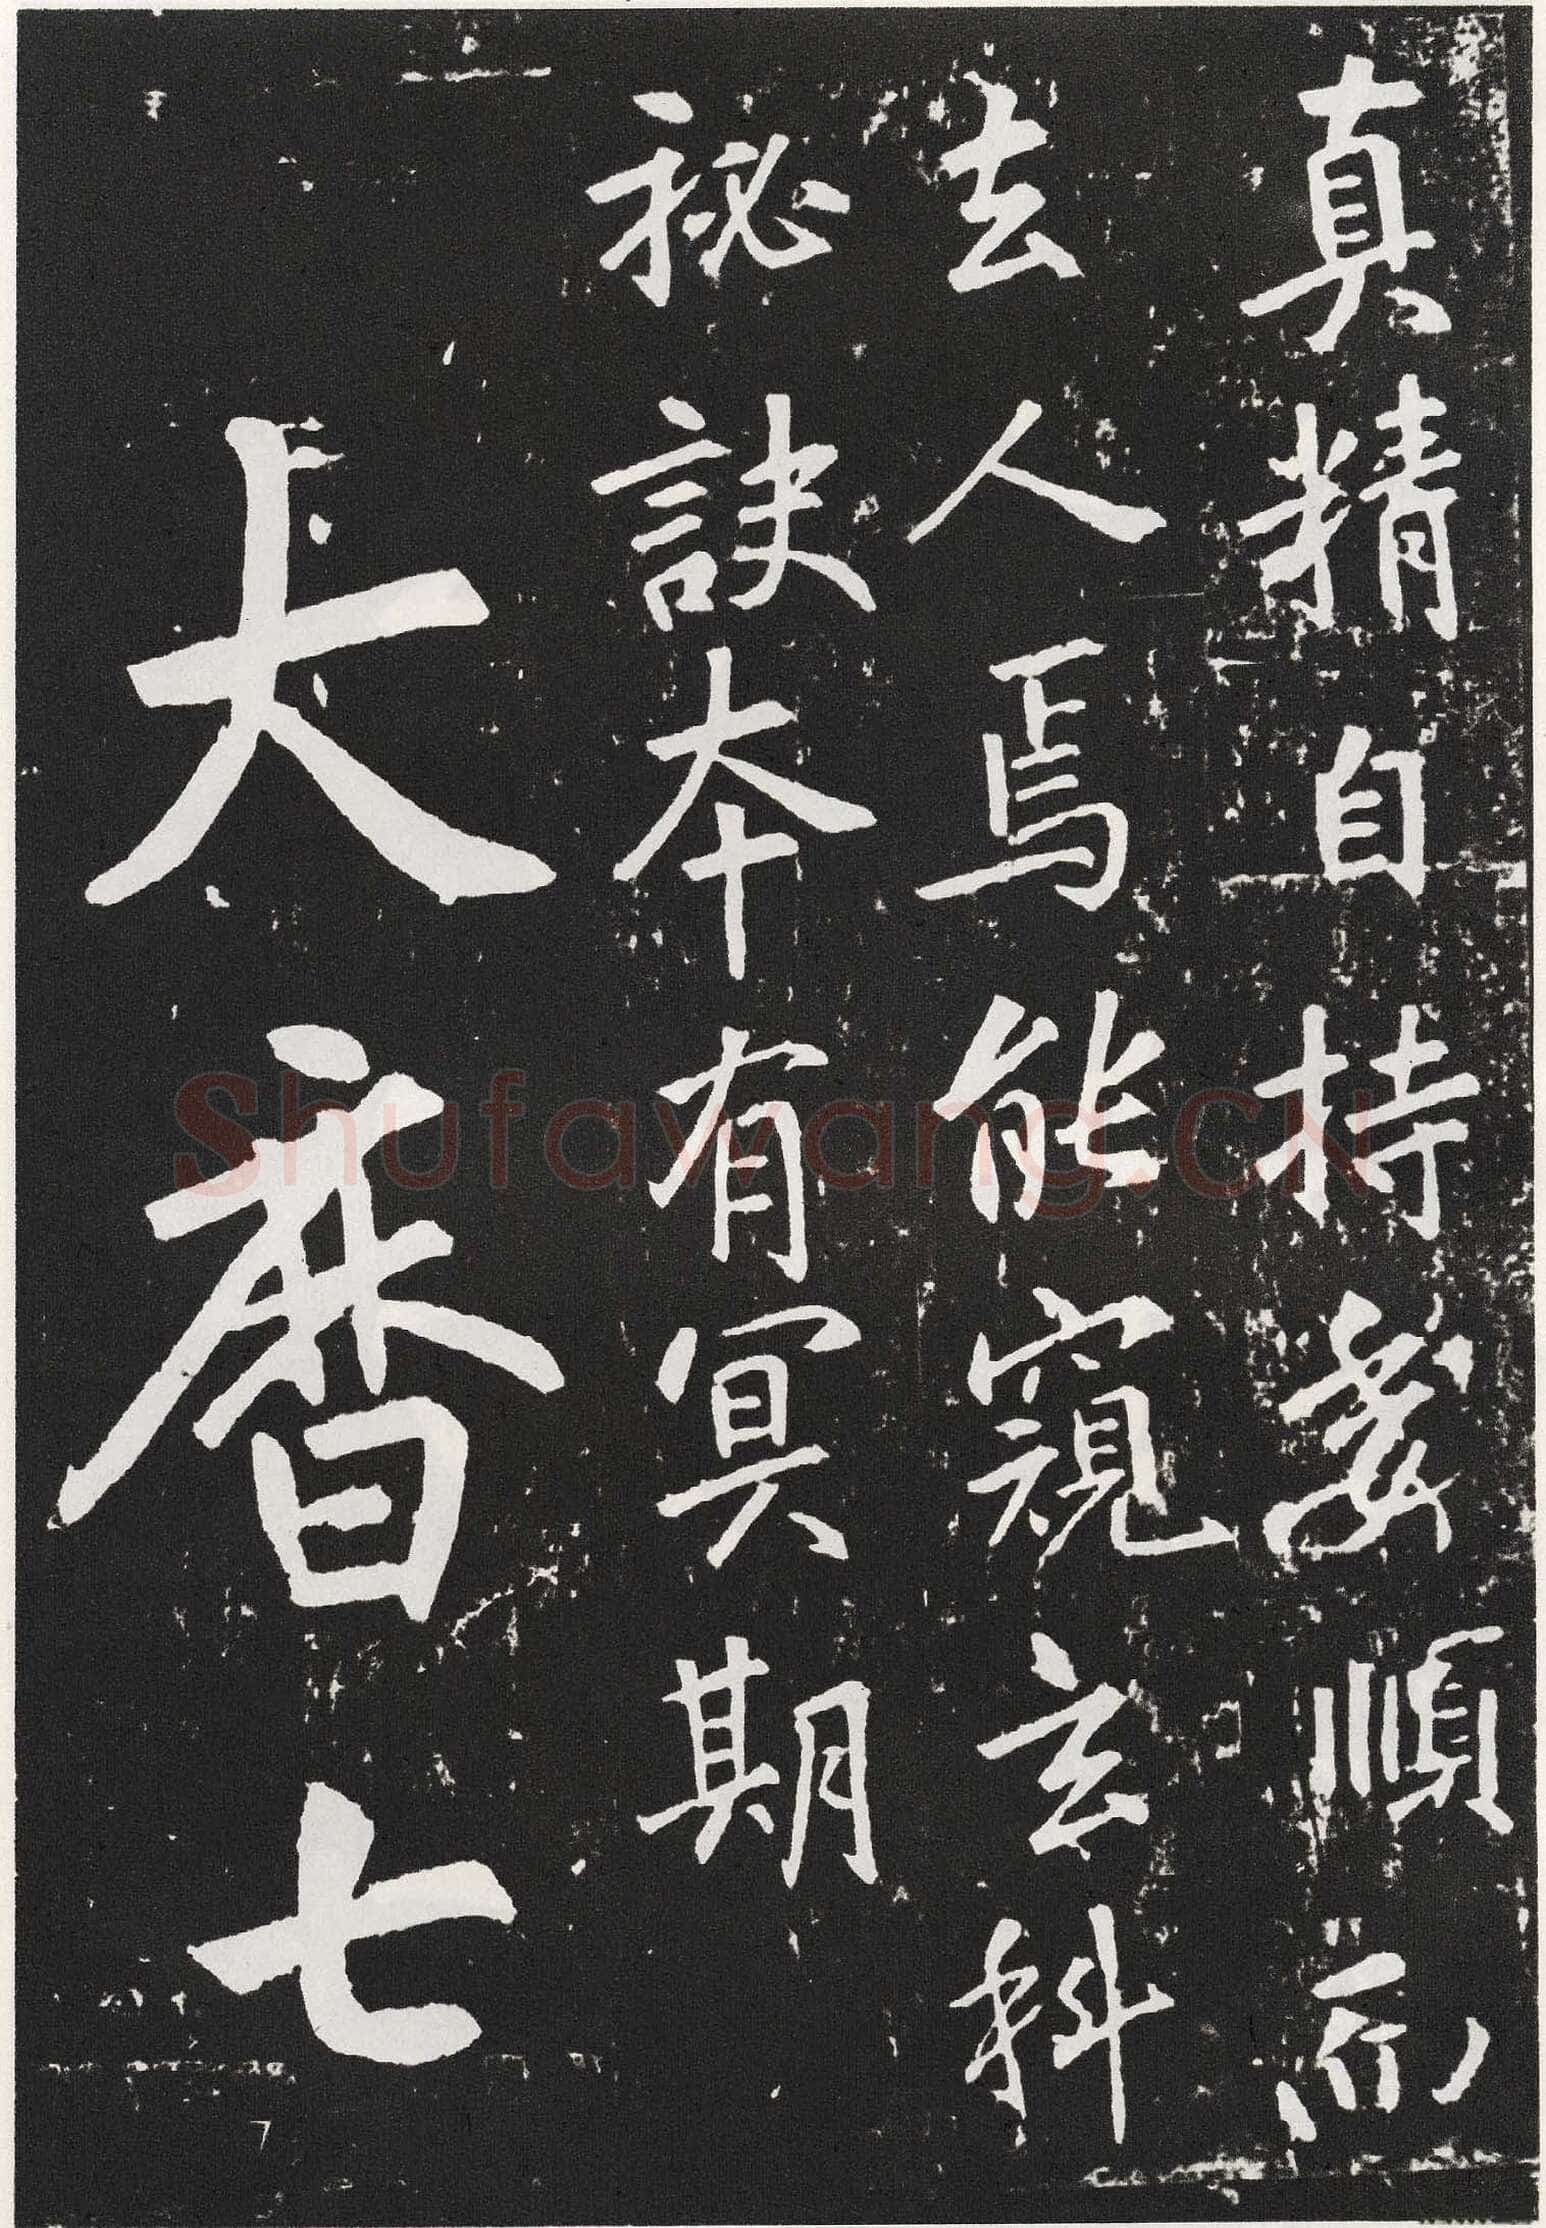 真精自持要順而
去人焉能窺玄科
祕訣本有冥期
大曆七
Shufawang.CN